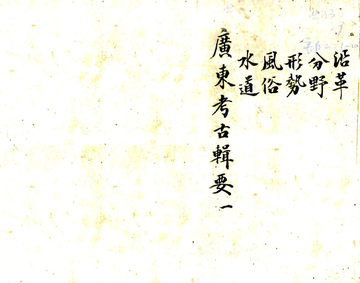 沿革
分野
形勢
風俗
水道
廣東考古輯要一